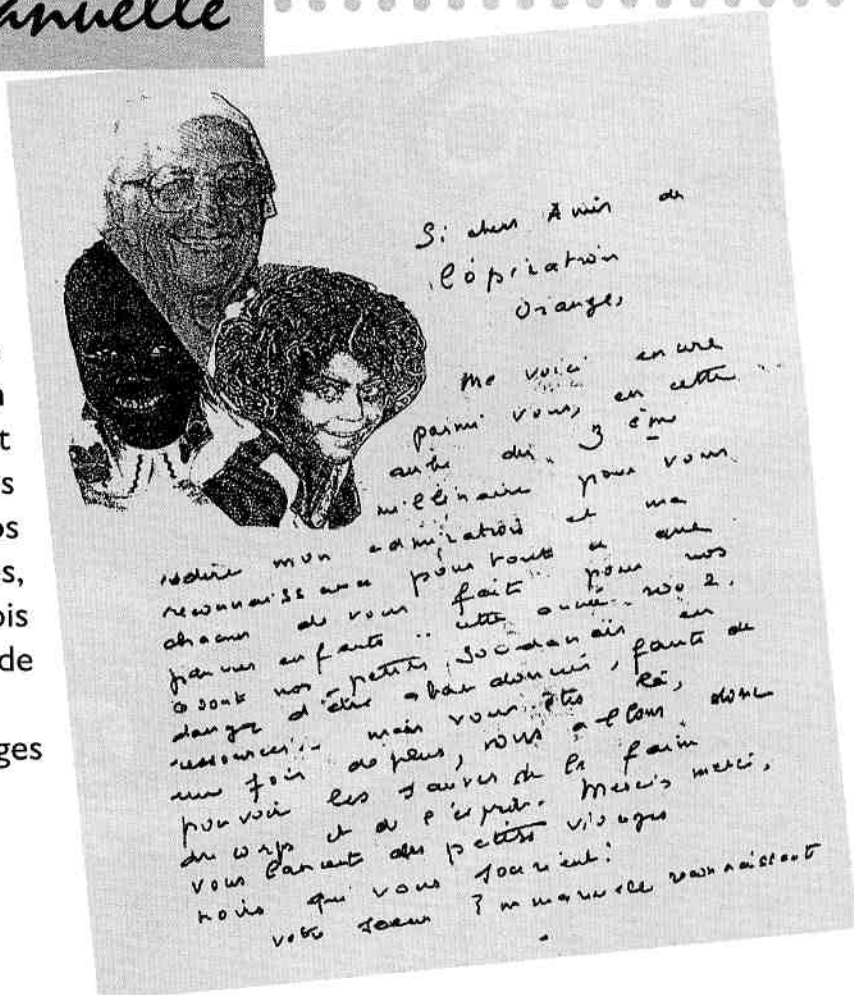 anuelle
t
s
os
es,
ois
de
ges
Si chers Amis de
l'opération
Orange,
Me voici encore
parmi vous, en cette
aube du 3 ème
millénaire pour vous
redire mon admiration et ma
reconnaissance pour tout ce que
chacun de vous fait pour nos
pauvres enfants.. cette année 2002.
ce sont nos petits Soudanais en
danger d'être abandonnés, faute de
ressources.. mais vous êtes là,
une fois de plus, nous allons donc
pouvoir les sauver de la faim
du corps et de l'esprit. Merci, merci,
vous lancent des petits visages
noirs qui vous sourient!
votre Soeur Emmanuelle reconnaissante